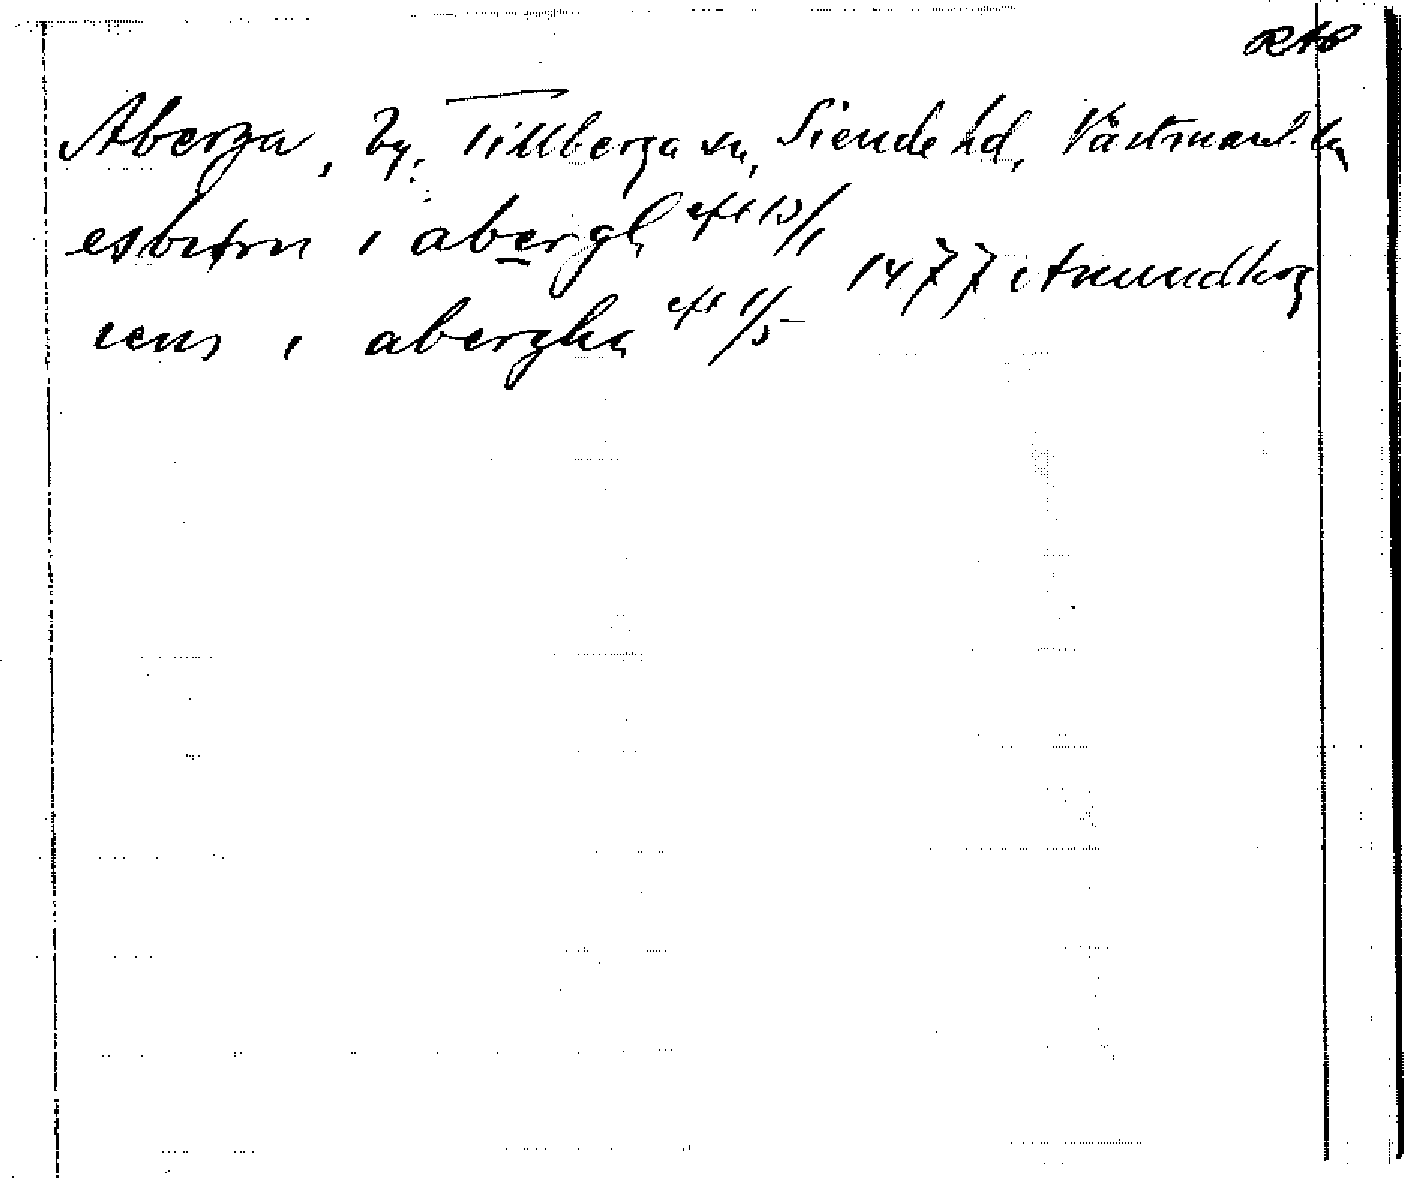 RAP
Aberga, by, Tillberga sn, Siende hd, Västmanl. la
esbiørn i abergh eft 13/1
1477 Amundherg
iens i abergha eft 1/5